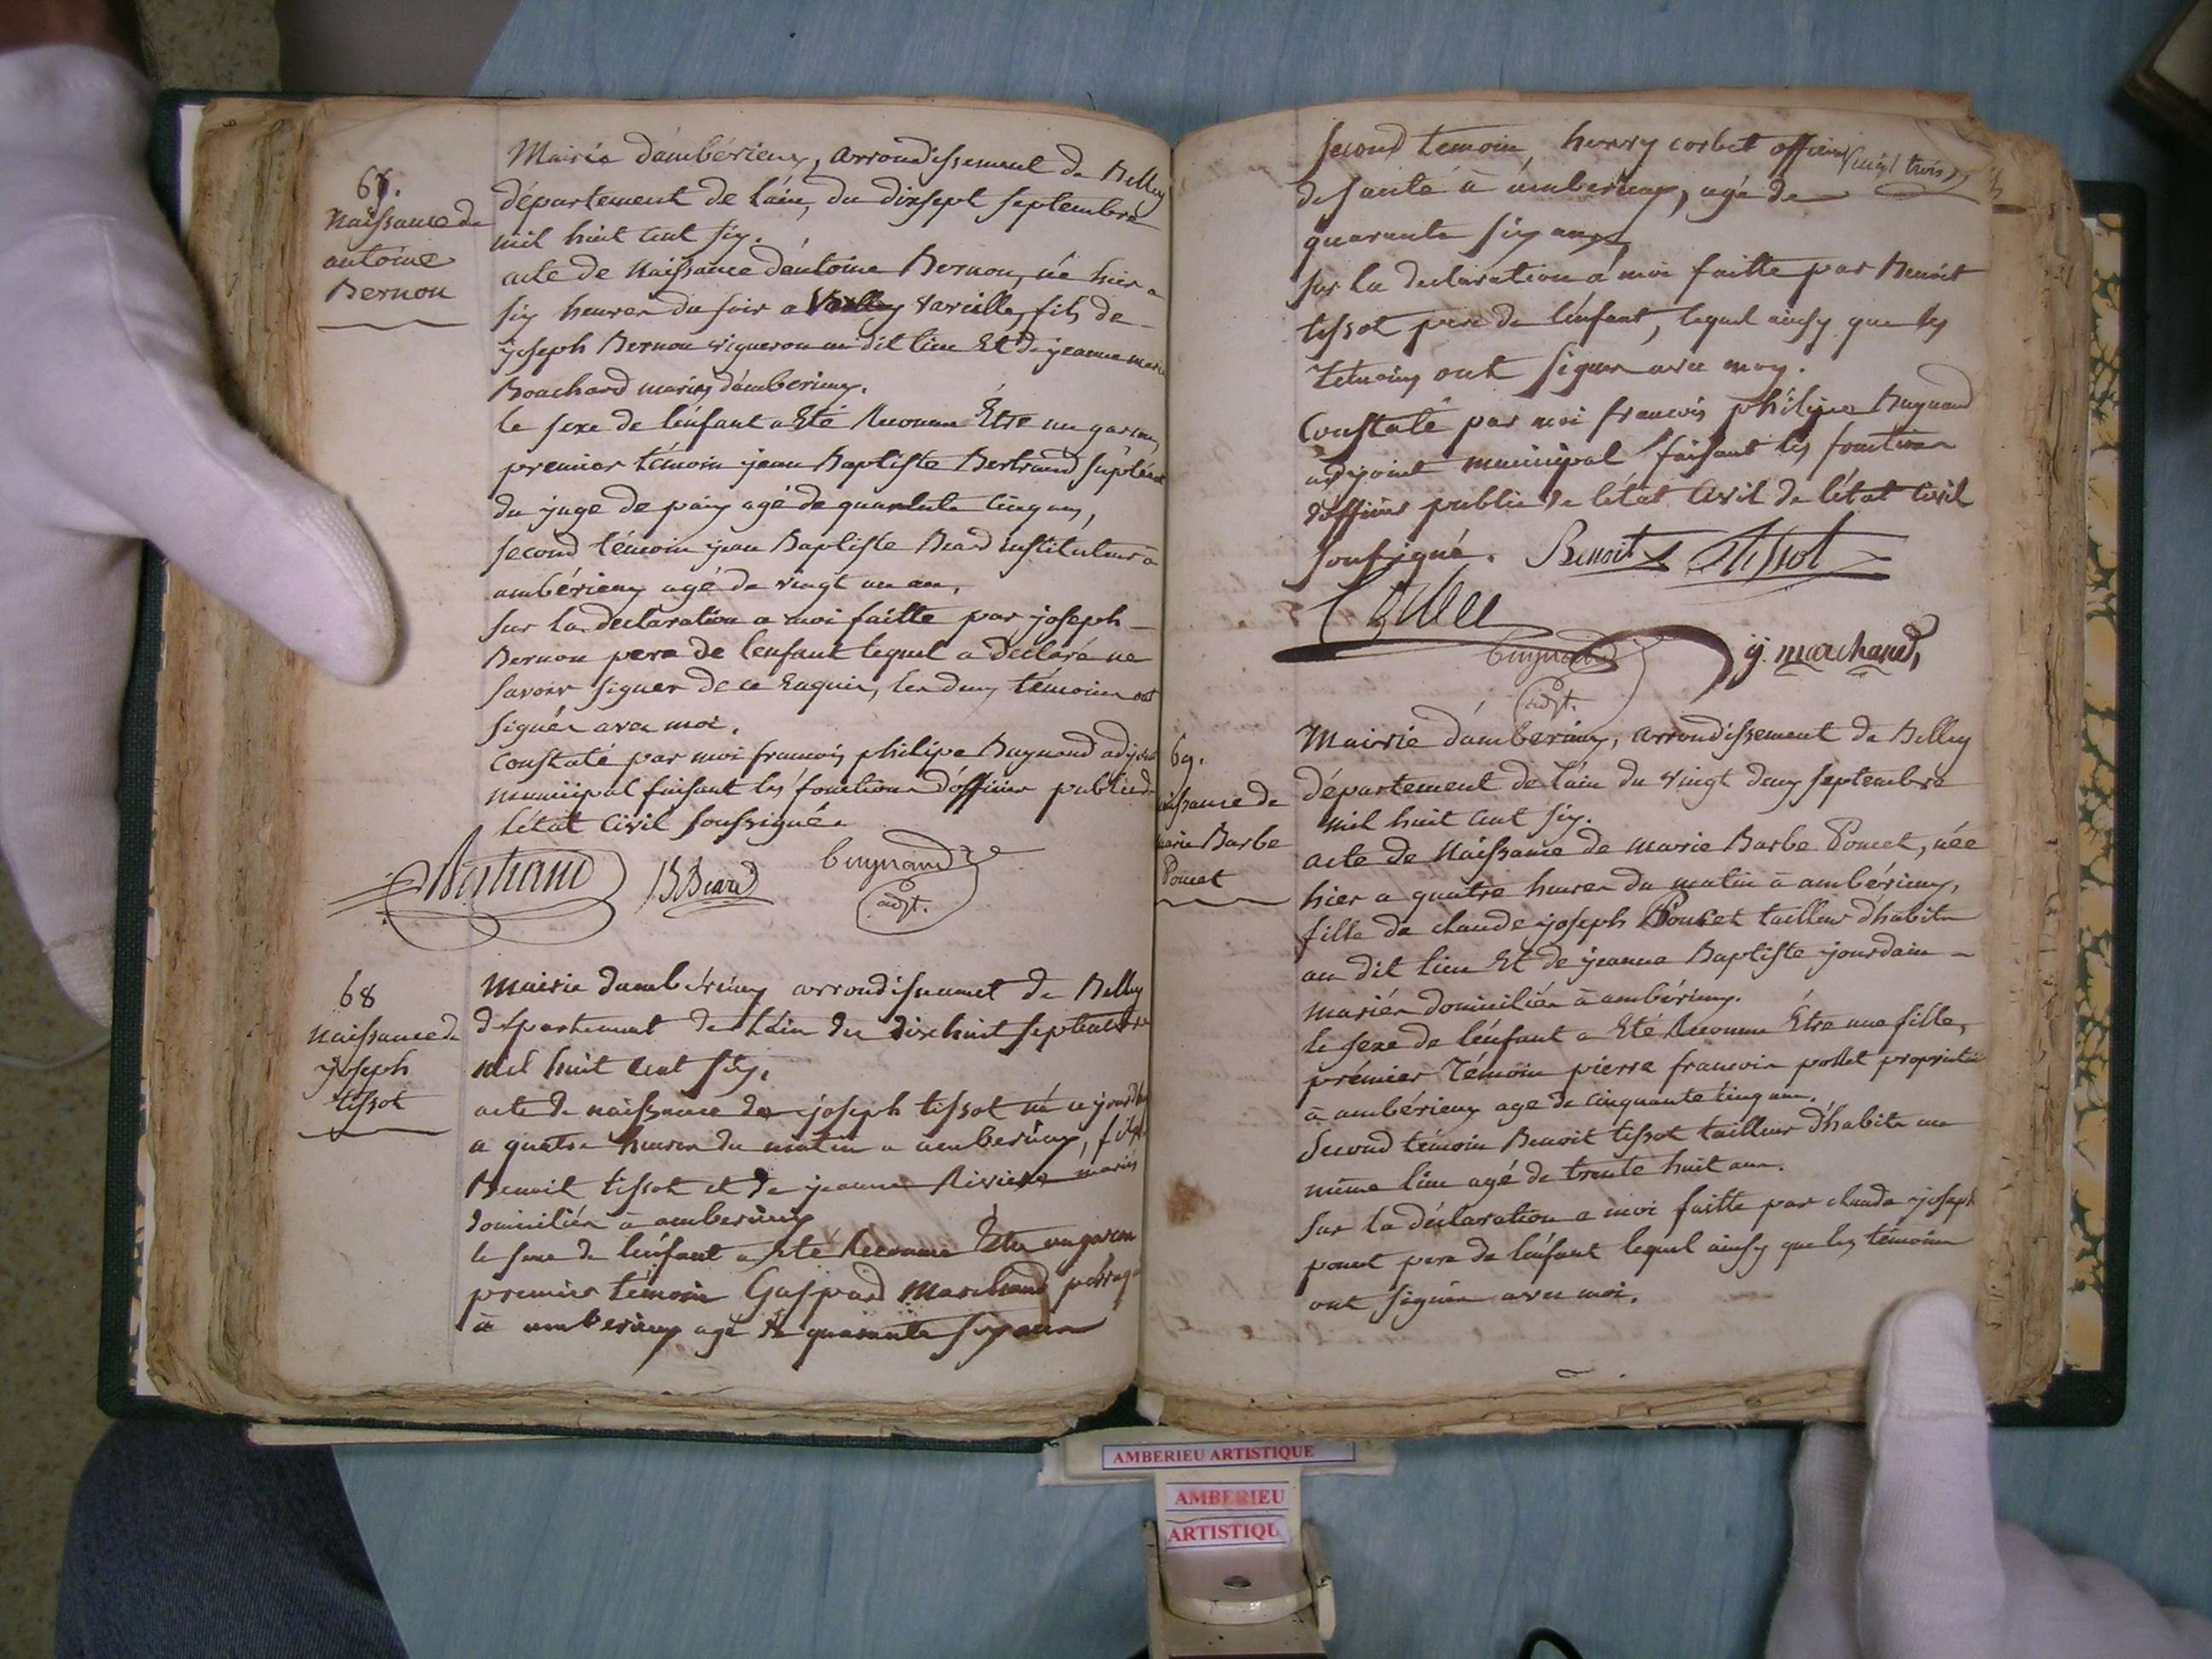 67.
Naissance de
antoine
Bernon
Mairie d'ambérieux, arrondissement de Belley
département de l'ain, du dixsept septembre
mil huit cent six.
acte de Naissance d'antoine Bernon, né hier a
six heures du soir a vareille, fils de
joseph Bernon vigneron au dit lieu Et de jeanne marie
Bouchard mariés d'amberieux.
le sexe de l'enfant a Eté Reconnu Être un garcon,
premier témoin jean Baptiste Bertrand supléant
du juge de paix agé de quarante cinq ans,
second témoin jean Baptiste Beard instituteur a
ambérieux agé de vingt un an,
sur la declaration a moi faitte par joseph
Bernon pere de l'enfant lequel a déclaré ne
savoir signer de ce Enquis, les deux témoins ont
signés avec moi.
Constaté par moi francois philipe Buynand adjoint
municipal faisant les fonctions d'officier public de
l'état Civil soussigné.
Bertrand JB Beard buynand
adjt.
68
Naissance de
joseph
tissot
Mairie d'ambérieux arrondissement de Belley
département de l'Ain du dixhuit septembre
mil huit cent six,
acte de naissance de joseph tissot né ce jourd'hui
a quatre heures du matin a amberieux, fils de
Benoit tissot et de jeanne Riviere mariés
domiciliés à amberieux
le sexe de l'enfant a Eté Reconnu Etre un garcon
premier témoin Gaspard Marchand
à amberieux agé de quarante six ans
second temoin, henry corbet officier
vingt trois
de santé à amberieux, agé de
quarante six ans,
sur la declaration à moi faitte par Benoit
tissot pere de l'enfant, lequel ainsy que les
temoins ont signer avec moy.
Constaté par moi francois philipe Buynand
adjoint municipal faisant les fonctions
d'officier public de l'état Civil de l'état Civil
soussigné. Benoit tissot
buynand g. marchand,
adjt.
69.
Naissance de
marie Barbe
Poncet
Mairie d'ambérieux, arrondissement de Belley
département de l'ain du vingt deux septembre
mil huit cent six.
acte de Naissance de marie Barbe Poncet, née
hier a quatre heures du matin à ambérieux,
fille de claude joseph Poncet tailleur d'habits
au dit lieu Et de jeanne Baptiste jourdain
mariés domiciliés à ambérieux.
le sexe de l'enfant a Eté Reconnu Être une fille,
prémier Témoin pierre francois pollet propriétaire
à ambérieux age de cinquante cinq ans.
Second témoin Benoit tissot tailleur d'habits au
même lieu agé de trente huit ans.
sur la déclaration a moi faitte par claude joseph
poncet pere de l'enfant lequel ainsy que les témoins
ont signés avec moi.
AMBERIEU ARTISTIQUE
AMBERIEU
ARTISTIQU